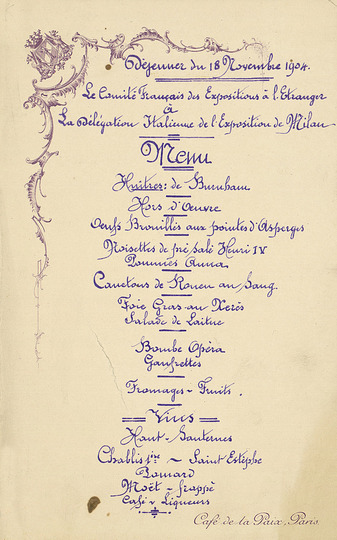 Déjeuner du 18 Novembre 1904.
Le Comité Français des Expositions à l'Etranger
à
La Délégation Italienne de l'Exposition de Milan
Menu
Huîtres: de Burnham
Hors d'Œuvre
Oeufs Brouillés aux pointes d'Asperges
Noisettes de pré salé Henri IV
Pommes Anna
Canetons de Rouen au Sang
Foie Gras au Xerès
Salade de Laitue
Bombe Opéra
Gaufrettes
Fromages - Fruits.
Vins
Haut-Sauternes
Chablis 1re ~ Saint Estèphe
Pomard
Moët - frappé
Café & Liqueurs
Café de la Paix, Paris.